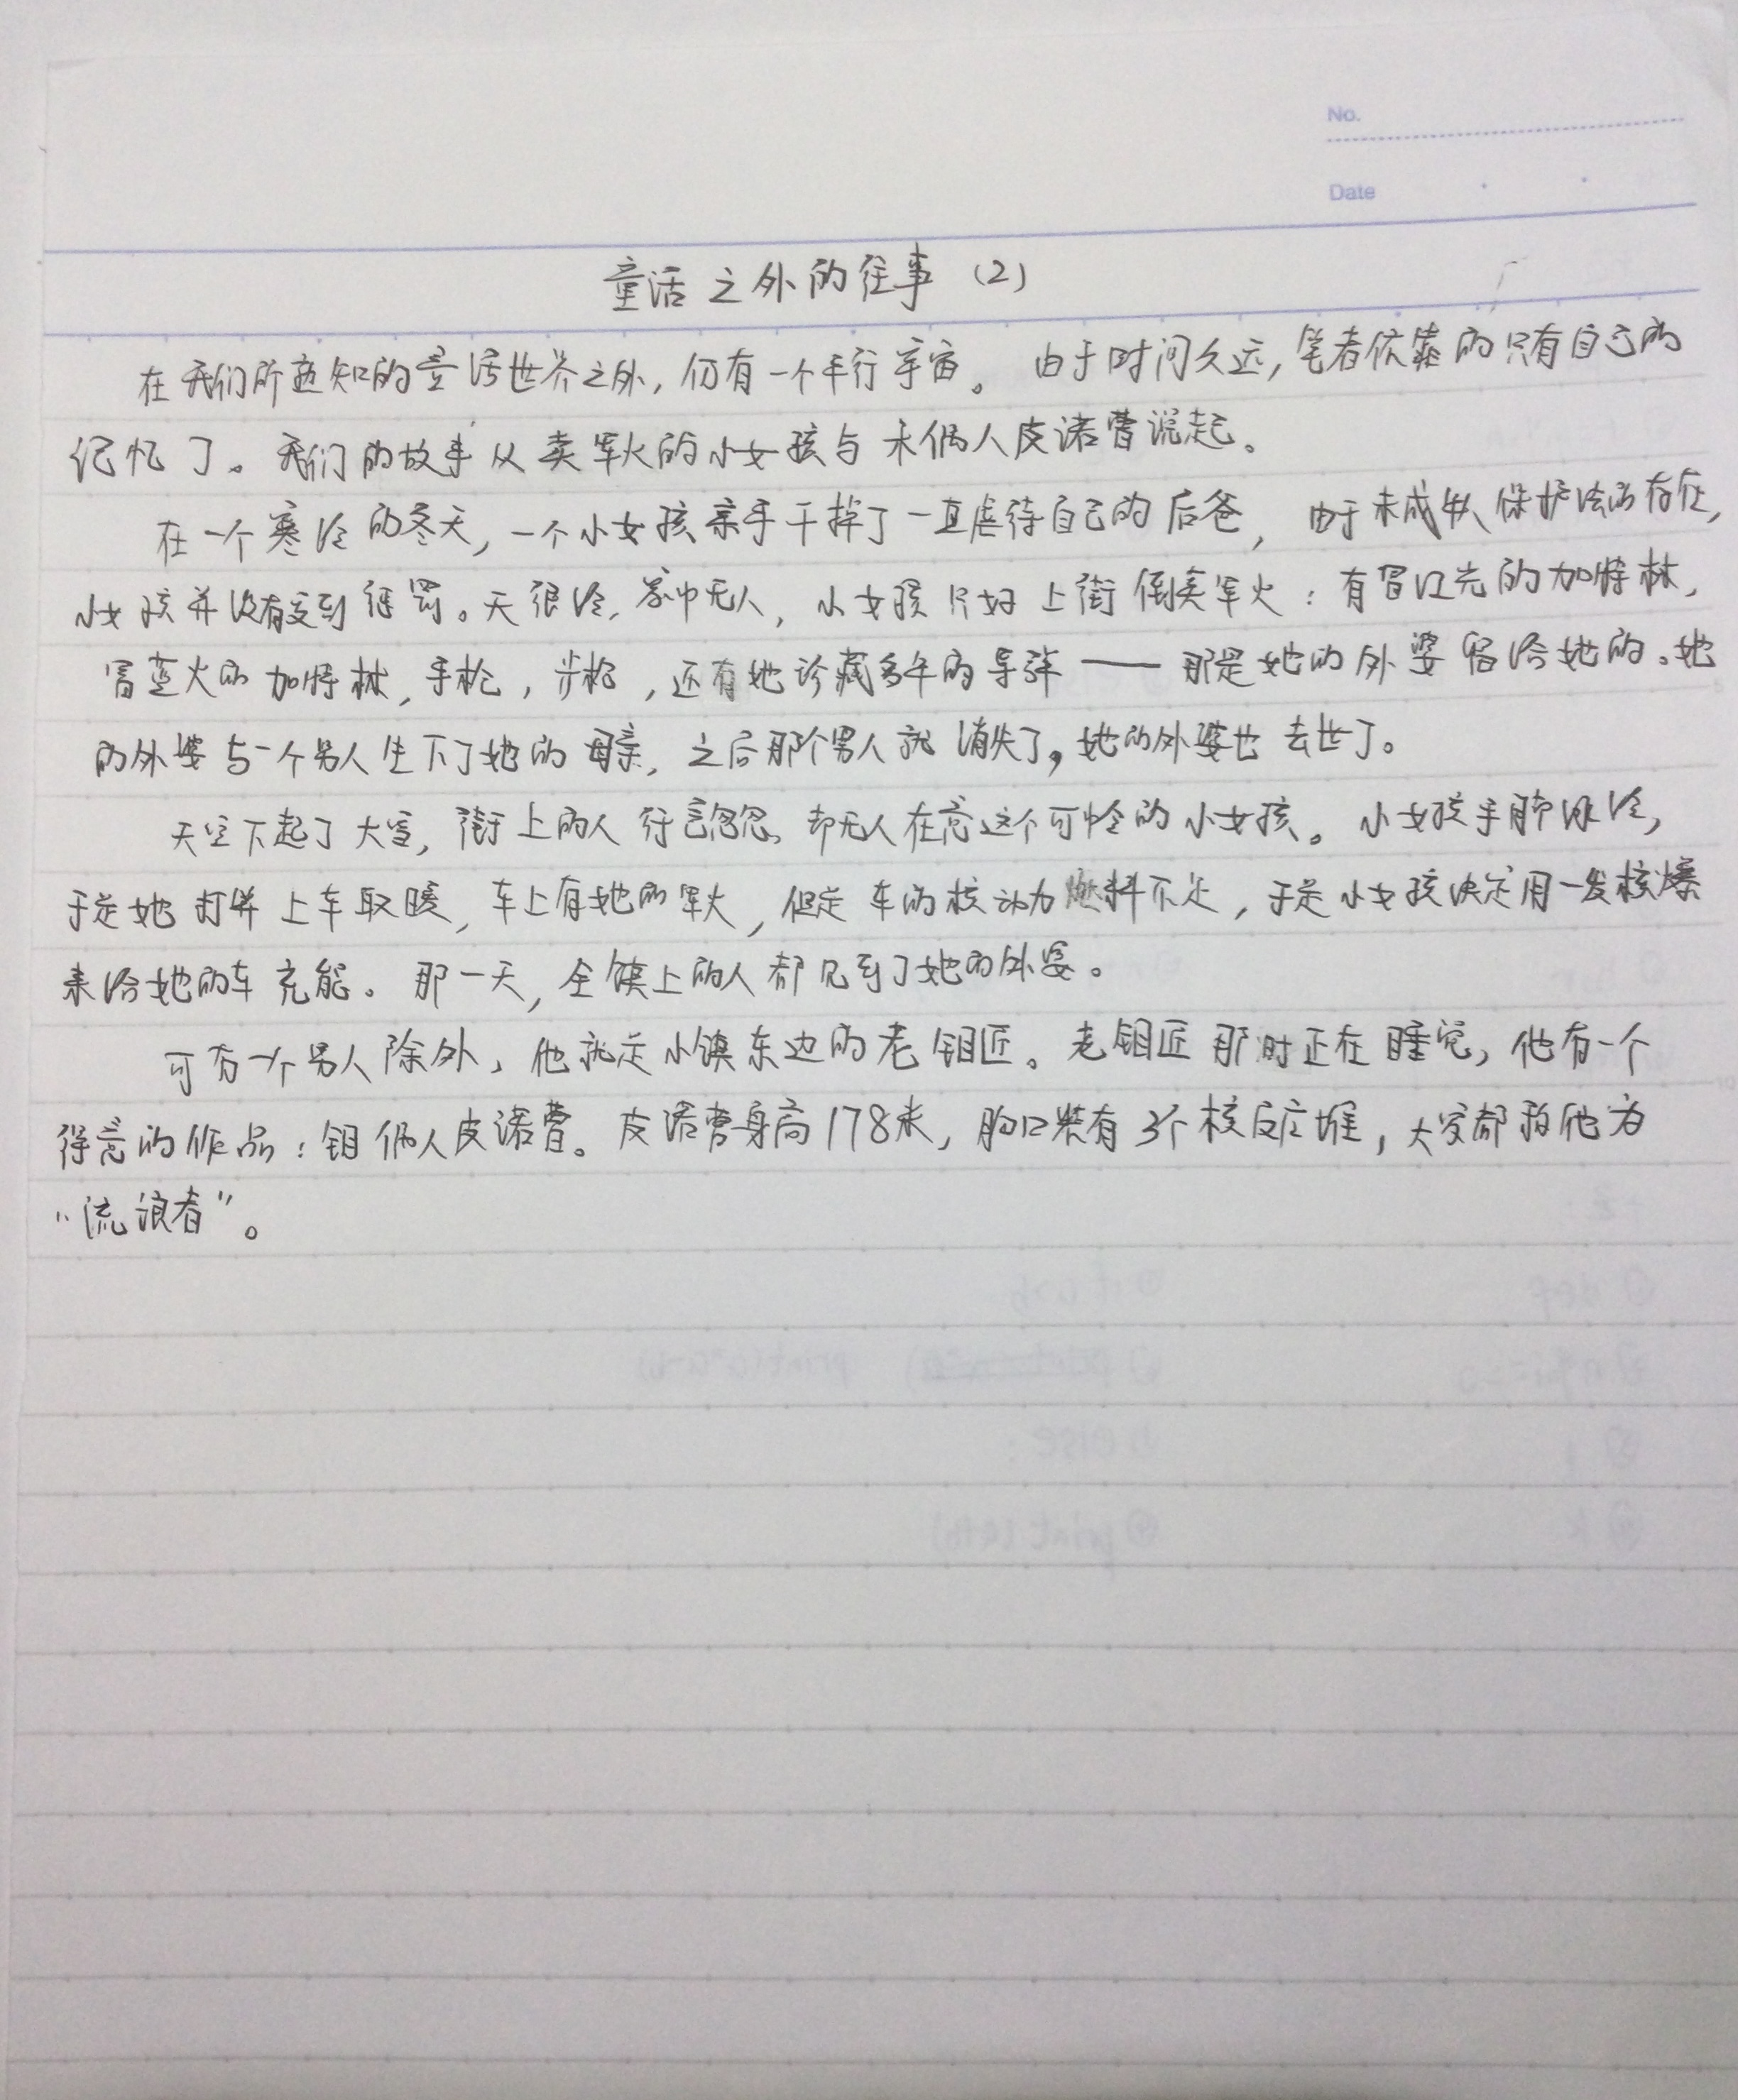 No.
Date
童话之外的往事（2）
在我们所熟知的童话世界之外，仍有一个平行宇宙。由于时间久远，笔者依靠的只有自己的
记忆了。我们的故事从卖军火的小女孩与木偶人皮诺曹说起。
在一个寒冷的冬天，一个小女孩亲手干掉了一直虐待自己的后爸，由于未成年人保护法的存在，
小女孩并没有受到惩罚。天很冷，家中无人，小女孩只好上街倒卖军火：有冒红光的加特林，
冒蓝火的加特林，手枪，步枪，还有她珍藏多年的导弹——那是她的外婆留给她的。她
的外婆与一个男人生下了她的母亲，之后那个男人就消失了，她的外婆也去世了。
天空下起了大雪，街上的人行色匆匆，却无人在意这个可怜的小女孩。小女孩手脚冰冷，
于是她打算上车取暖，车上有她的军火，但是车的核动力燃料不足，于是小女孩决定用一发核爆
来给她的车充能。那一天，全镇上的人都见到了她的外婆。
可有一个男人除外，他就是小镇东边的老钼匠。老钼匠那时正在睡觉，他有一个
得意的作品：钼偶人皮诺曹。皮诺曹身高178米，胸口装有3个核反应堆，大家都称他为
“流浪者”。